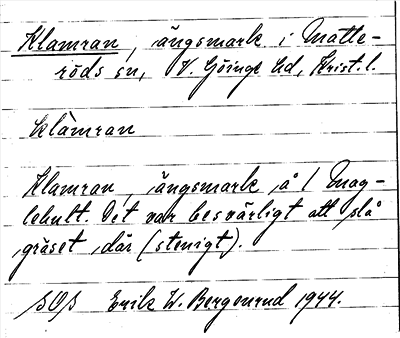 Klamran, ängsmark i Matte-
röds sn, V. Göinge hd, Krist. l.
klàmran
Klamran, ängsmark å 1 Mag-
lehult. Det var besvärligt att slå
gräset där (stenigt).
SOS Erik W. Bergenrud 1944.